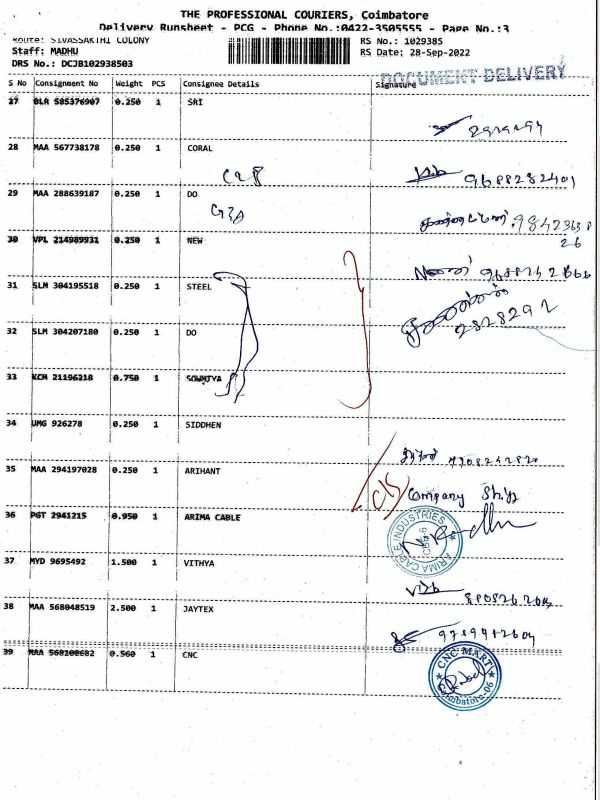 THE PROFESSIONAL COURIERS, Coimbatore
Delivery Runsheet - PCG - Phone No.:0422-3505555 - Page No.:3
Route: SIVASSAKTHI COLONY
RS No.: 1029385
Staff: MADHU
RS Date: 28-Sep-2022
DRS No.: DCJB102938503
DOCUMENT DELIVERY
S No Consignment No Weight PCS Consignee Details Signature
27 BLR 585376907 0.250 1 SRI
28 MAA 567738178 0.250 1 CORAL
9688282401
29 MAA 288639187 0.250 1 DO
30 VPL 214989931 0.250 1 NEW
31 SLM 304195518 0.250 1 STEEL
2828292
32 SLM 304207180 0.250 1 DO
33 KCM 21196218 0.750 1 SOWMIYA
34 UMG 926278 0.250 1 SIDDHEN
35 MAA 294197028 0.250 1 ARIHANT
Company
36 PGT 2941215 0.950 1 ARIMA CABLE
ARIMA CABLE INDUSTRIES
CBE-6
37 MYD 9695492 1.500 1 VITHYA
38 MAA 568048519 2.500 1 JAYTEX
39 MAA 568108682 0.560 1 CNC
CNC MART
Coimbatore-06